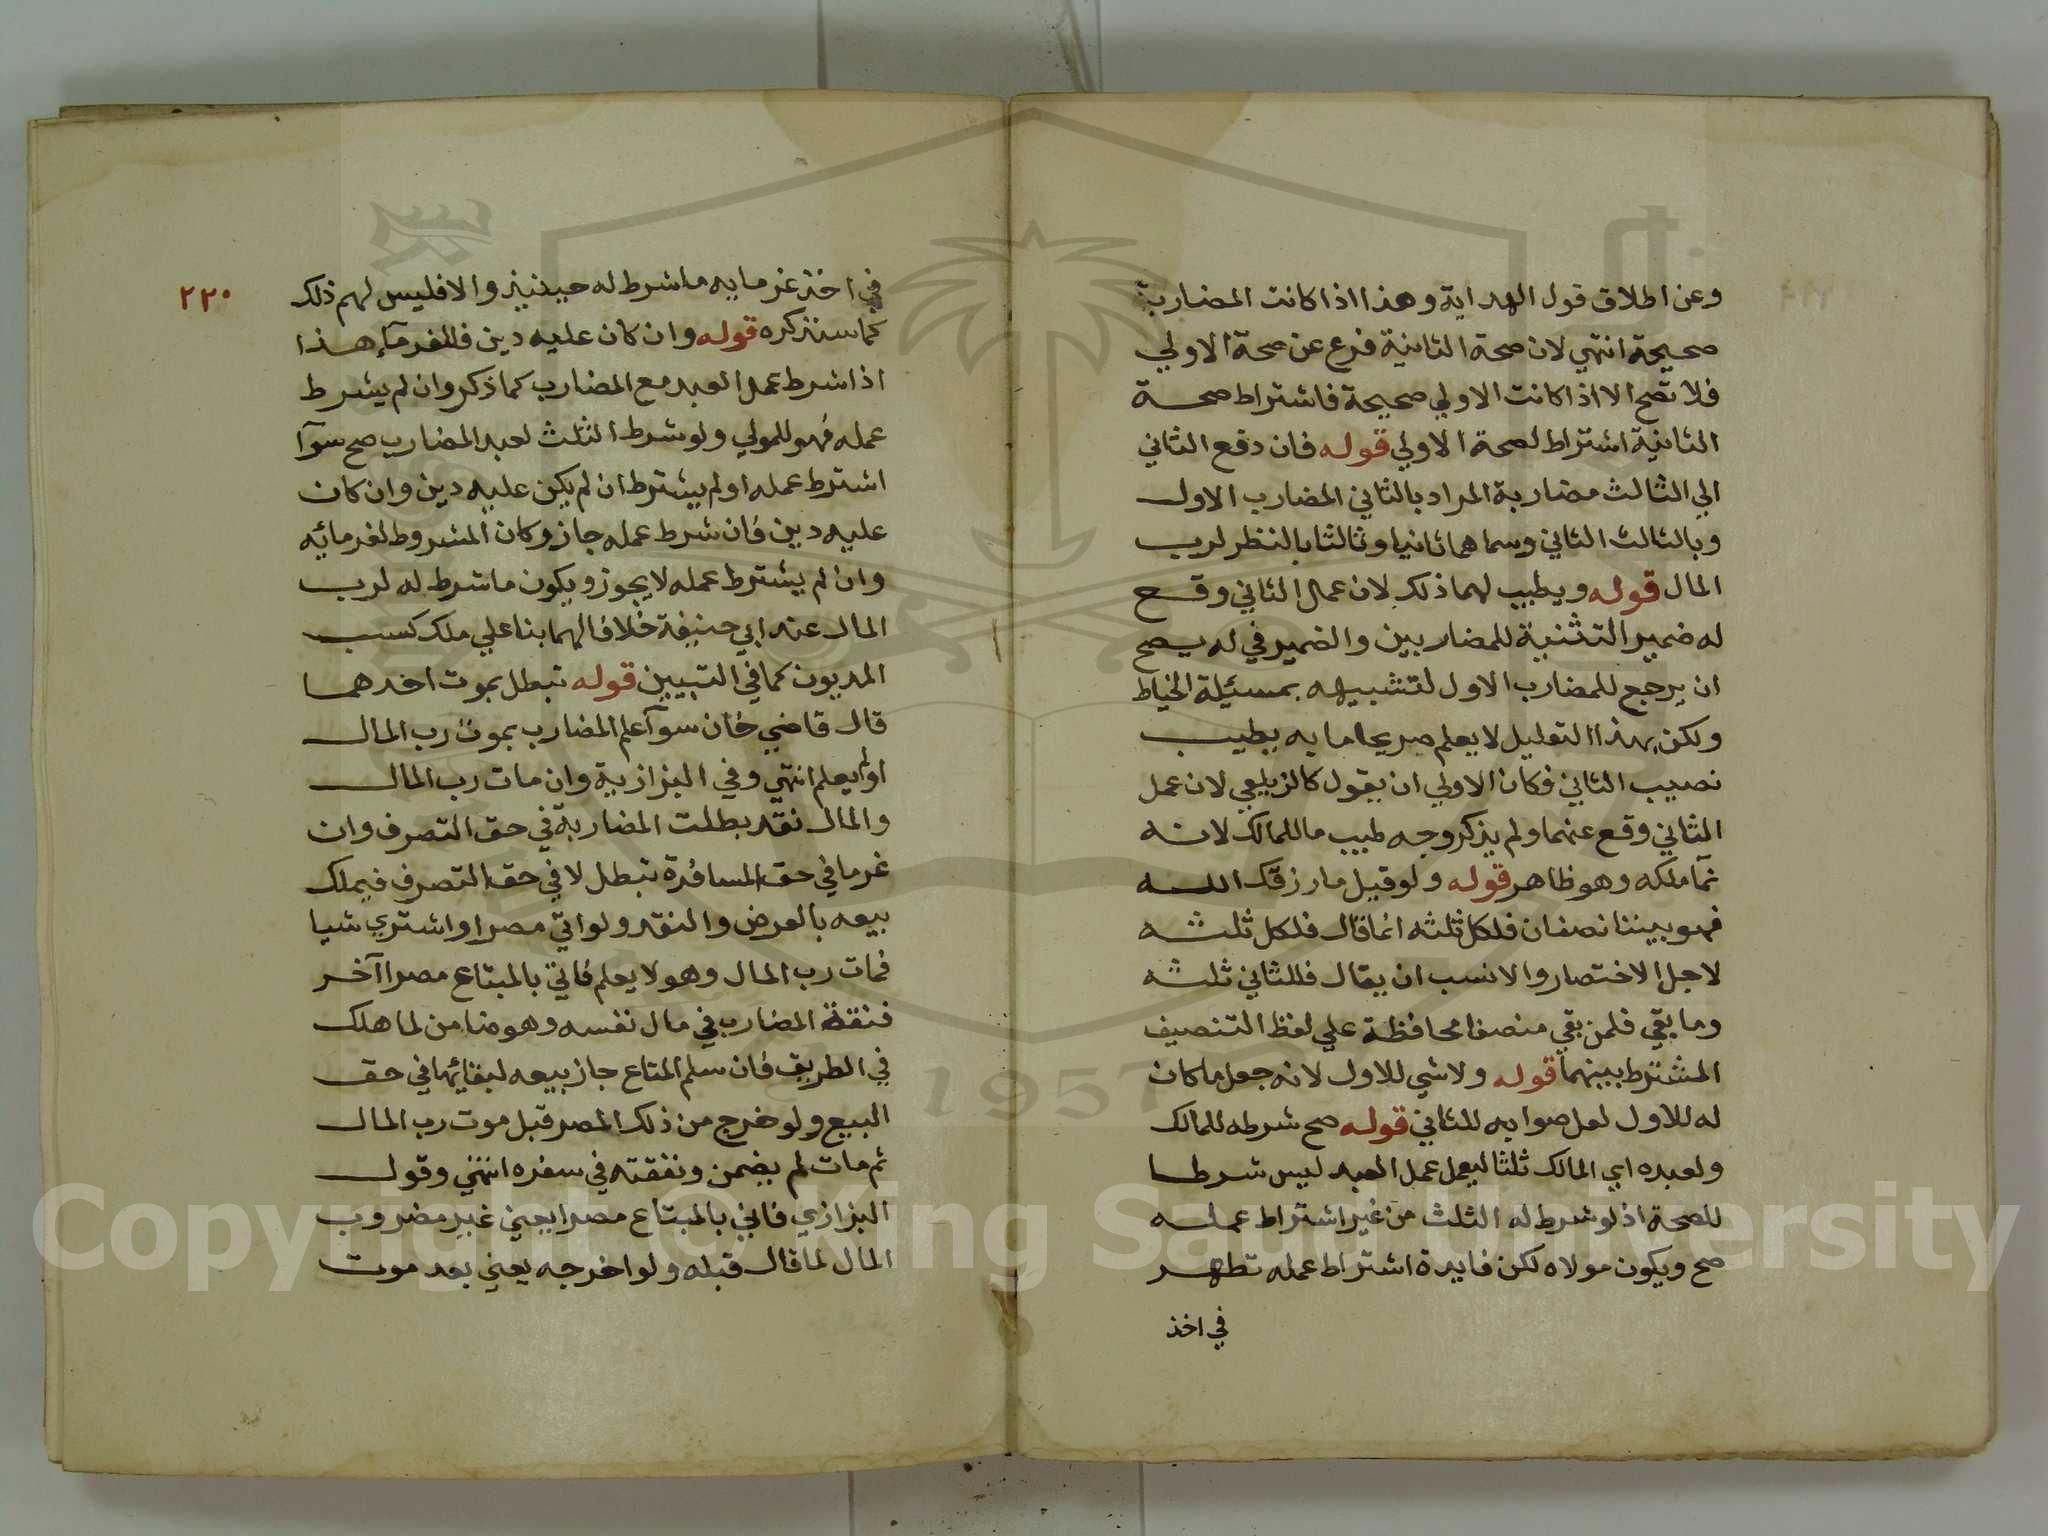 وعن اطلاق قول الهداية وهذا اذا كانت المضاربة
صحيحة انتهي لان صحة الثانية فرع عن صحة الاولي
فلا تصح الا اذا كانت الاولي صحيحة فاشتراط صحة
الثانية اشتراط لصحة الاولي قوله فان دفع الثاني
الي الثالث مضاربة المراد بالثاني المضارب الاول
وبالثالث الثاني وسماهما ثانيا وثالثا بالنظر لرب
المال قوله ويطيب لهما ذلك لان عمل الثاني وقع
له ضمير التثنية للمضاربين والضمير في له يصح
ان يرجع للمضارب الاول لتشبيهه بمسئلة الخياط
ولكن بهذا التعليل لا يعلم صريحا ما به يطيب
نصيب الثاني فكان الاولي ان يقول كالزيلعي لان عمل
الثاني وقع عنهما ولم يذكر وجه طيب ما للمالك لانه
نمآ ملكه وهو ظاهر قوله ولو قيل ما رزقك الله
فهو بيننا نصفان فلكل ثلثه انما قال فلكل ثلثه
لاجل الاختصار والانسب ان يقال فللثاني ثلثه
وما بقي فلمن بقي منصفا محافظة علي لفظ التنصيف
المشترط بينهما قوله ولا شي للاول لانه جعل ما كان
له للاول لعل صوابه للثاني قوله صح شرطه للمالك
ولعبده اي المالك ثلثا ليعمل عمل العبد ليس شرطا
للصحة اذ لو شرط له الثلث من غير اشتراط عمله
صح ويكون مولاه لكن فايدة اشتراط عمله تظهر
في اخذ
٢٢٠
في اخذ غرمايه ما شرط له حينئذ والا فليس لهم ذلك
كما سنذكره قوله وان كان عليه دين فللغرمآء هذا
اذا شرط عمل العبد مع المضارب كما ذكر وان لم يشرط
عمله فهو للمولي ولو شرط الثلث لعبد المضارب صح سوآ
اشترط عمله او لم يشترط ان لم يكن عليه دين وان كان
عليه دين فان شرط عمله جاز وكان المشروط لغرمائه
وان لم يشترط عمله لا يجوز ويكون ما شرط له لرب
المال عند ابي حنيفة خلافا لهما بنا علي ملك كسب
المديون كما في التبيين قوله تبطل بموت احدهما
قال قاضي خان سوآ علم المضارب بموت رب المال
او لم يعلم انتهي وفي البزازية وان مات رب المال
والمال نقد بطلت المضاربة في حق التصرف وان
غرما في حق المسافرة تبطل لا في حق التصرف فيملك
بيعه بالعرض والنقد ولو اتي مصرا واشتري شيا
فمات رب المال وهو لا يعلم فاتي بالمبتاع مصرا آخر
فنفقة المضارب في مال نفسه وهو ضامن لما هلك
في الطريق فان سلم المتاع جاز بيعه لبقائها في حق
البيع ولو خرج من ذلك المصر قبل موت رب المال
ثم مات لم يضمن ونفقته في سفره انتهي وقول
البزازي فاتي بالمبتاع مصرا يعني غير مصر وب
المال لما قال قبله ولو اخرجه يعني بعد موت
Copyright © King Saud University
1957